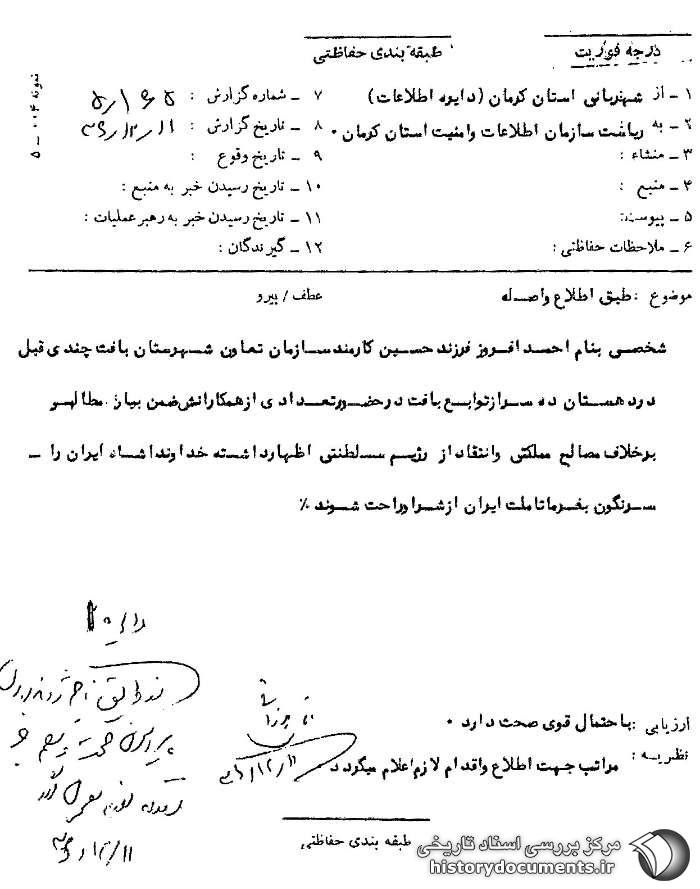 درجه فوریت
طبقه بندی حفاظتی
نمونه ۰۰۴ - ۵
۱ - از شهربانی استان کرمان (دایره اطلاعات)
۷ - شماره گزارش :
۲ - به ریاست سازمان اطلاعات وامنیت استان کرمان ۰
۸ - تاریخ گزارش : ۳۶/۱۲/۱۱
۳ - منشاء :
۹ - تاریخ وقوع :
۴ - منبع :
۱۰ - تاریخ رسیدن خبر به منبع :
۵ - پیوست:
۱۱ - تاریخ رسیدن خبر به رهبر عملیات :
۶ - ملاحظات حفاظتی :
۱۲ - گیرندگان :
موضوع : طبق اطلاع واصله
عطف / پیرو
شخصی بنام احمد افروز فرزند حسین کارمند سازمان تعاون شهرستان بافت چندی قبل
در دهستان ده سرازتوابع بافت در حضور تعدادی از همکارانش ضمن بیان مطالبو
برخلاف مصالح مملکتی وانتقاد از رژیم سلطنتی اظهارداشته خداوندا شاه ایران را -
سرنگون بفرما تا ملت ایران از شر او راحت شوند ٪
ارزیابی : باحتمال قوی صحت دارد ۰
نظریه : مراتب جهت اطلاع واقدام لازم اعلام میگردد
۳۶/۱۲/۱۱
۳۶/۱۲/۱۱
طبقه بندی حفاظتی
مرکز بررسی اسناد تاریخی
historydocuments.ir